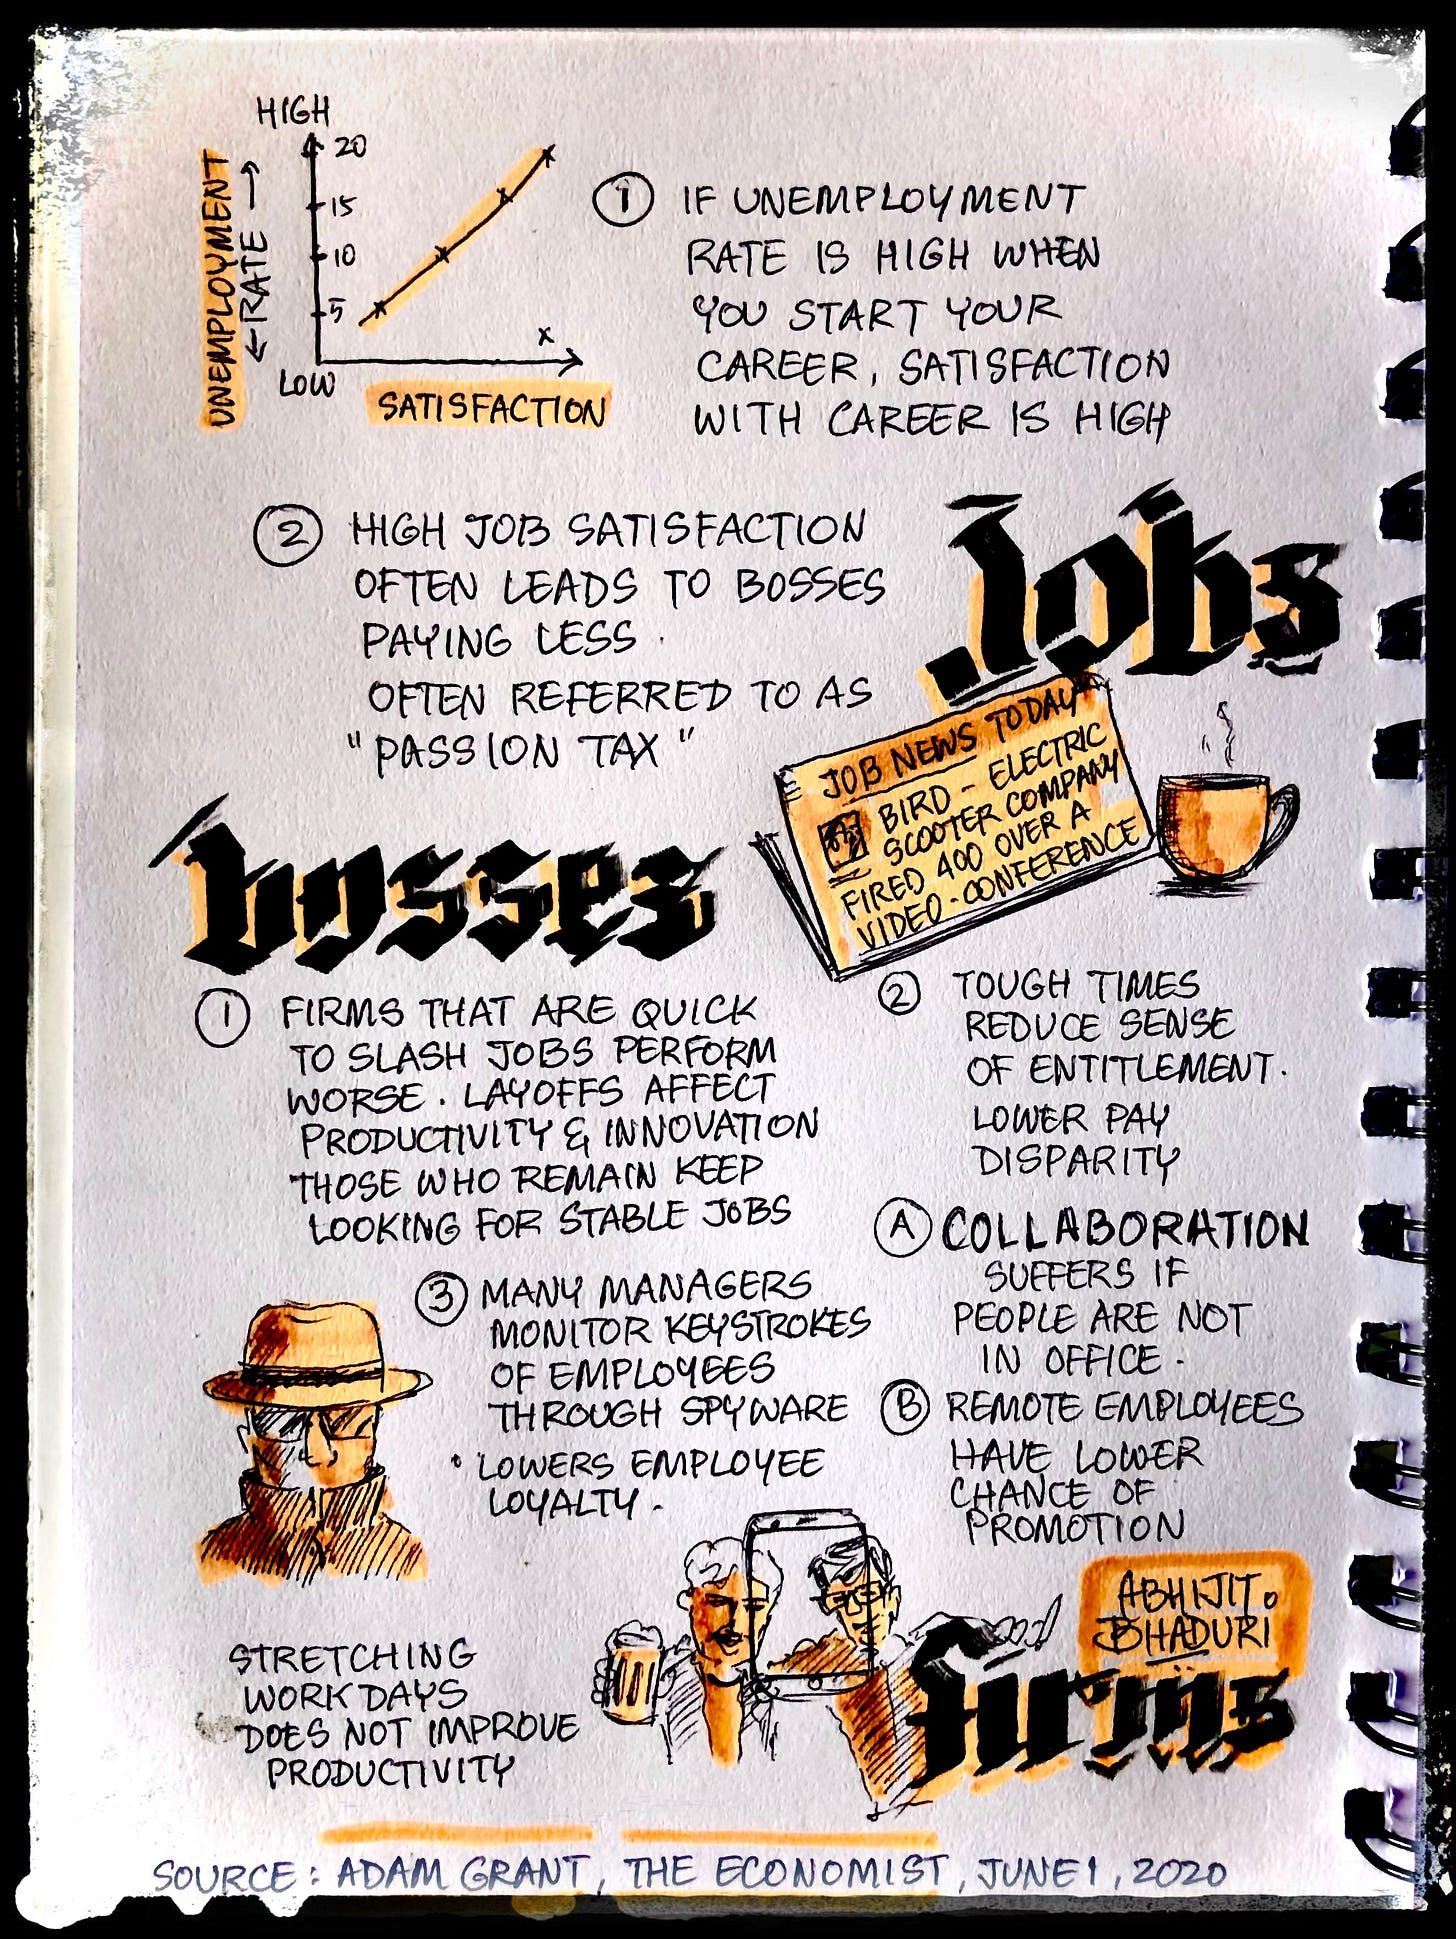 HIGH
20
15
10
5
UNEMPLOYMENT
← RATE →
LOW
x
SATISFACTION
① IF UNEMPLOYMENT
RATE IS HIGH WHEN
YOU START YOUR
CAREER, SATISFACTION
WITH CAREER IS HIGH
② HIGH JOB SATISFACTION
OFTEN LEADS TO BOSSES
PAYING LESS.
OFTEN REFERRED TO AS
"PASSION TAX"
Jobs
JOB NEWS TODAY
BIRD - ELECTRIC
SCOOTER COMPANY
FIRED 400 OVER A
VIDEO-CONFERENCE
bosses
① FIRMS THAT ARE QUICK
TO SLASH JOBS PERFORM
WORSE. LAYOFFS AFFECT
PRODUCTIVITY & INNOVATION
THOSE WHO REMAIN KEEP
LOOKING FOR STABLE JOBS
② TOUGH TIMES
REDUCE SENSE
OF ENTITLEMENT.
LOWER PAY
DISPARITY
Ⓐ COLLABORATION
SUFFERS IF
PEOPLE ARE NOT
IN OFFICE.
Ⓑ REMOTE EMPLOYEES
HAVE LOWER
CHANCE OF
PROMOTION
③ MANY MANAGERS
MONITOR KEYSTROKES
OF EMPLOYEES
THROUGH SPYWARE
• LOWERS EMPLOYEE
LOYALTY.
ABHIJIT.
BHADURI
firms
STRETCHING
WORKDAYS
DOES NOT IMPROVE
PRODUCTIVITY
SOURCE: ADAM GRANT, THE ECONOMIST, JUNE 1, 2020